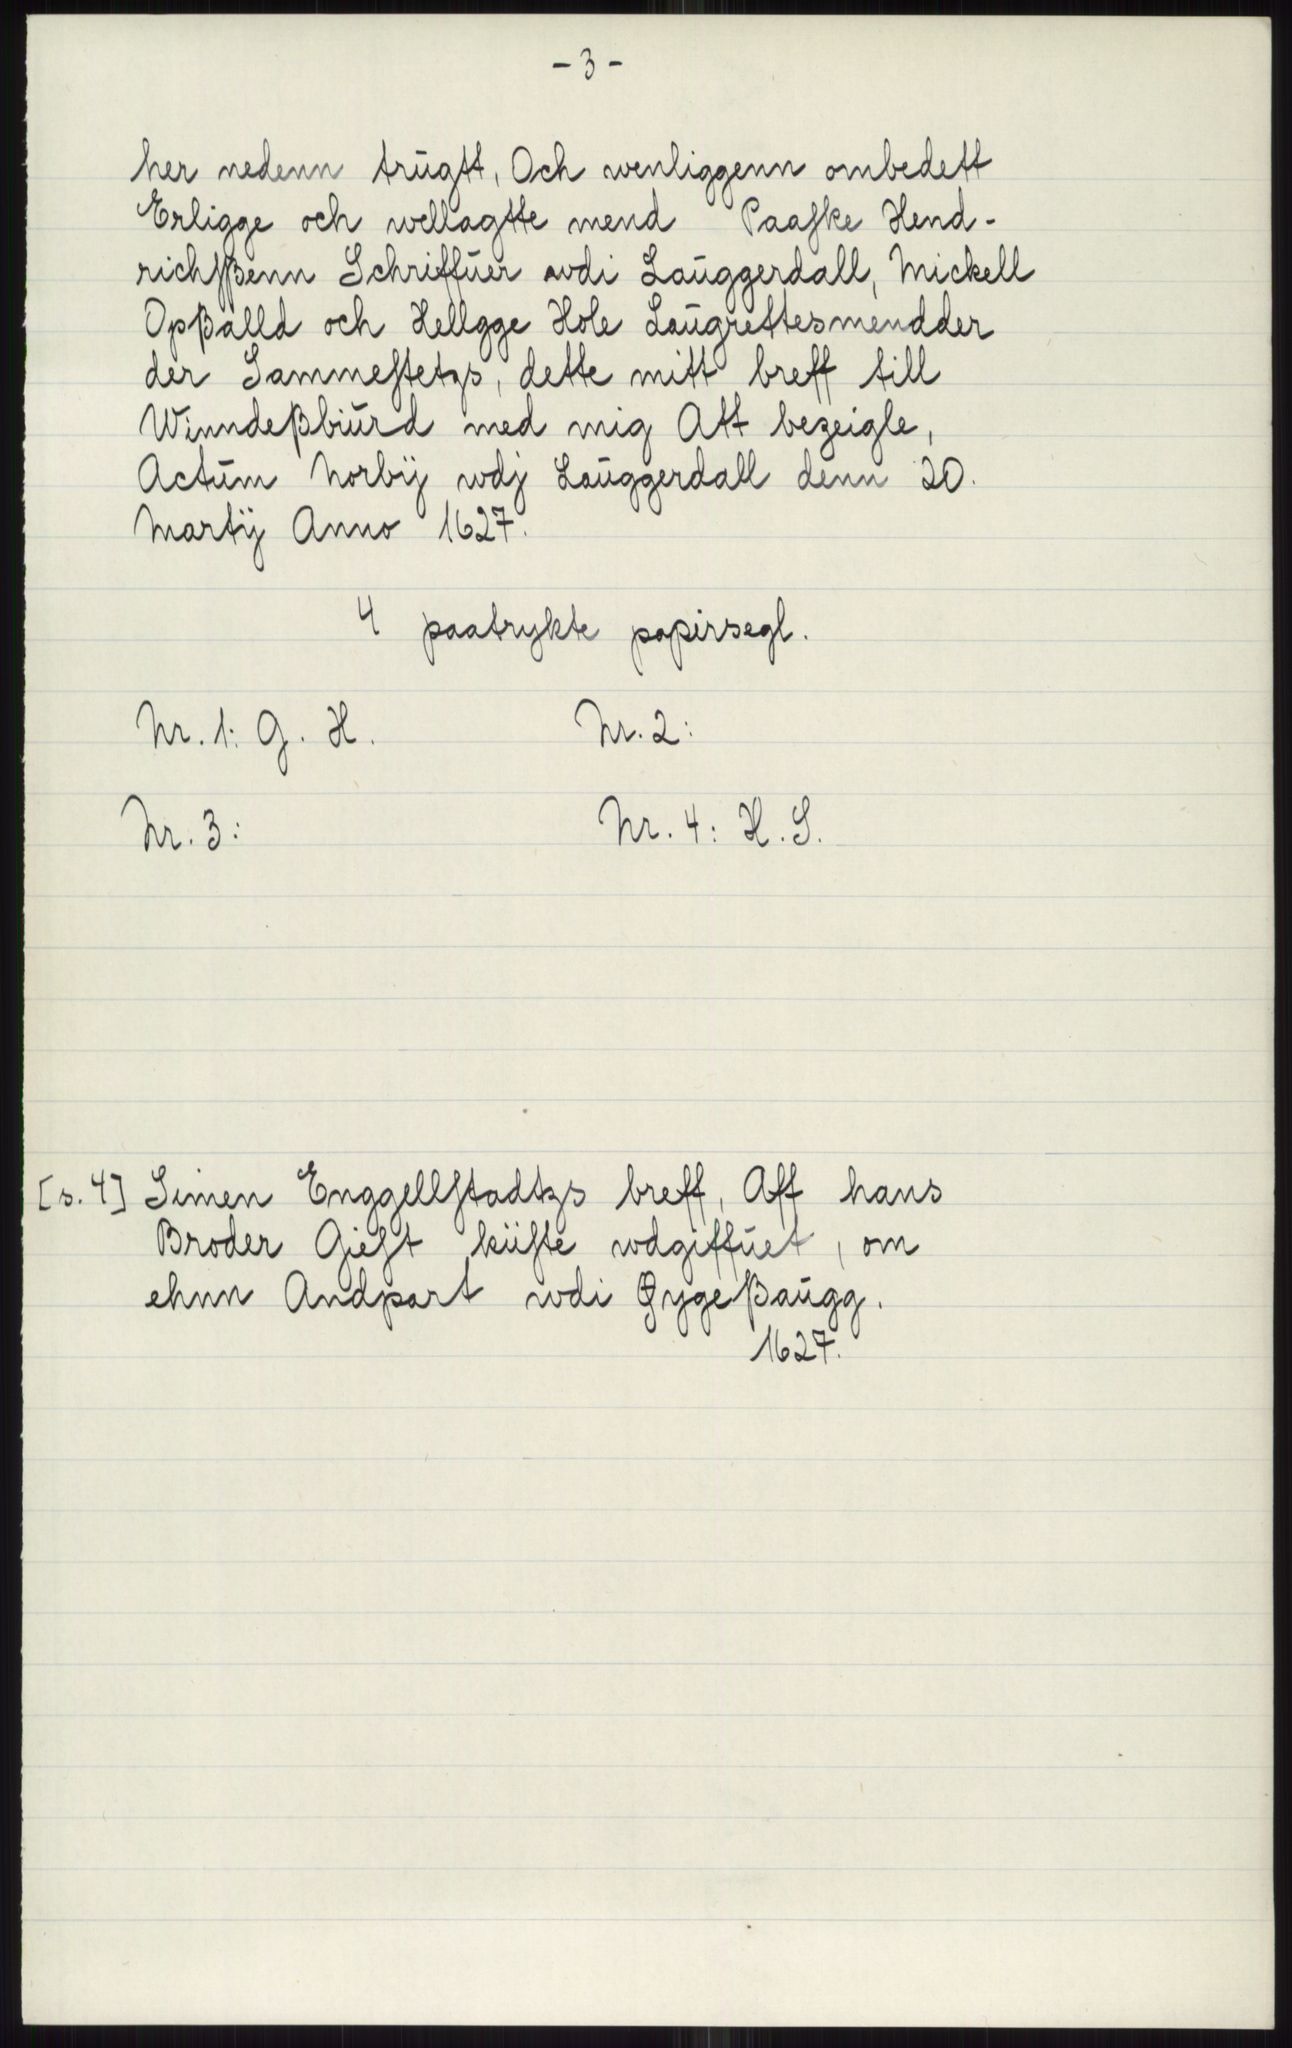 - 3 -
her nedenn trŭgtt, Och wenliggenn ombedett
Erligge och wellagtte mend Paaske Hend-
richsßenn Schriffŭer wdi Laŭggerdall, Mickell
Opßalld och Hellgge Hole Laŭgrettesmendder
der Sammestetzs, dette mitt breff till
Winndeßbiŭrd med mig Att bezeigle,
Actŭm Norbÿ wdj Laŭggerdall denn 20.
Martÿ Anno 1627.
4 paatrykte papirsegl.
Nr. 1: G. H. Nr. 2:
Nr. 3: Nr. 4: H. S.
[s. 4] Simen Enggellstadtzs breff, Aff hans
Broder Giest küste wdgiffŭet, om
ehnn Andpart wdi Øygeßaŭgg.
1627.